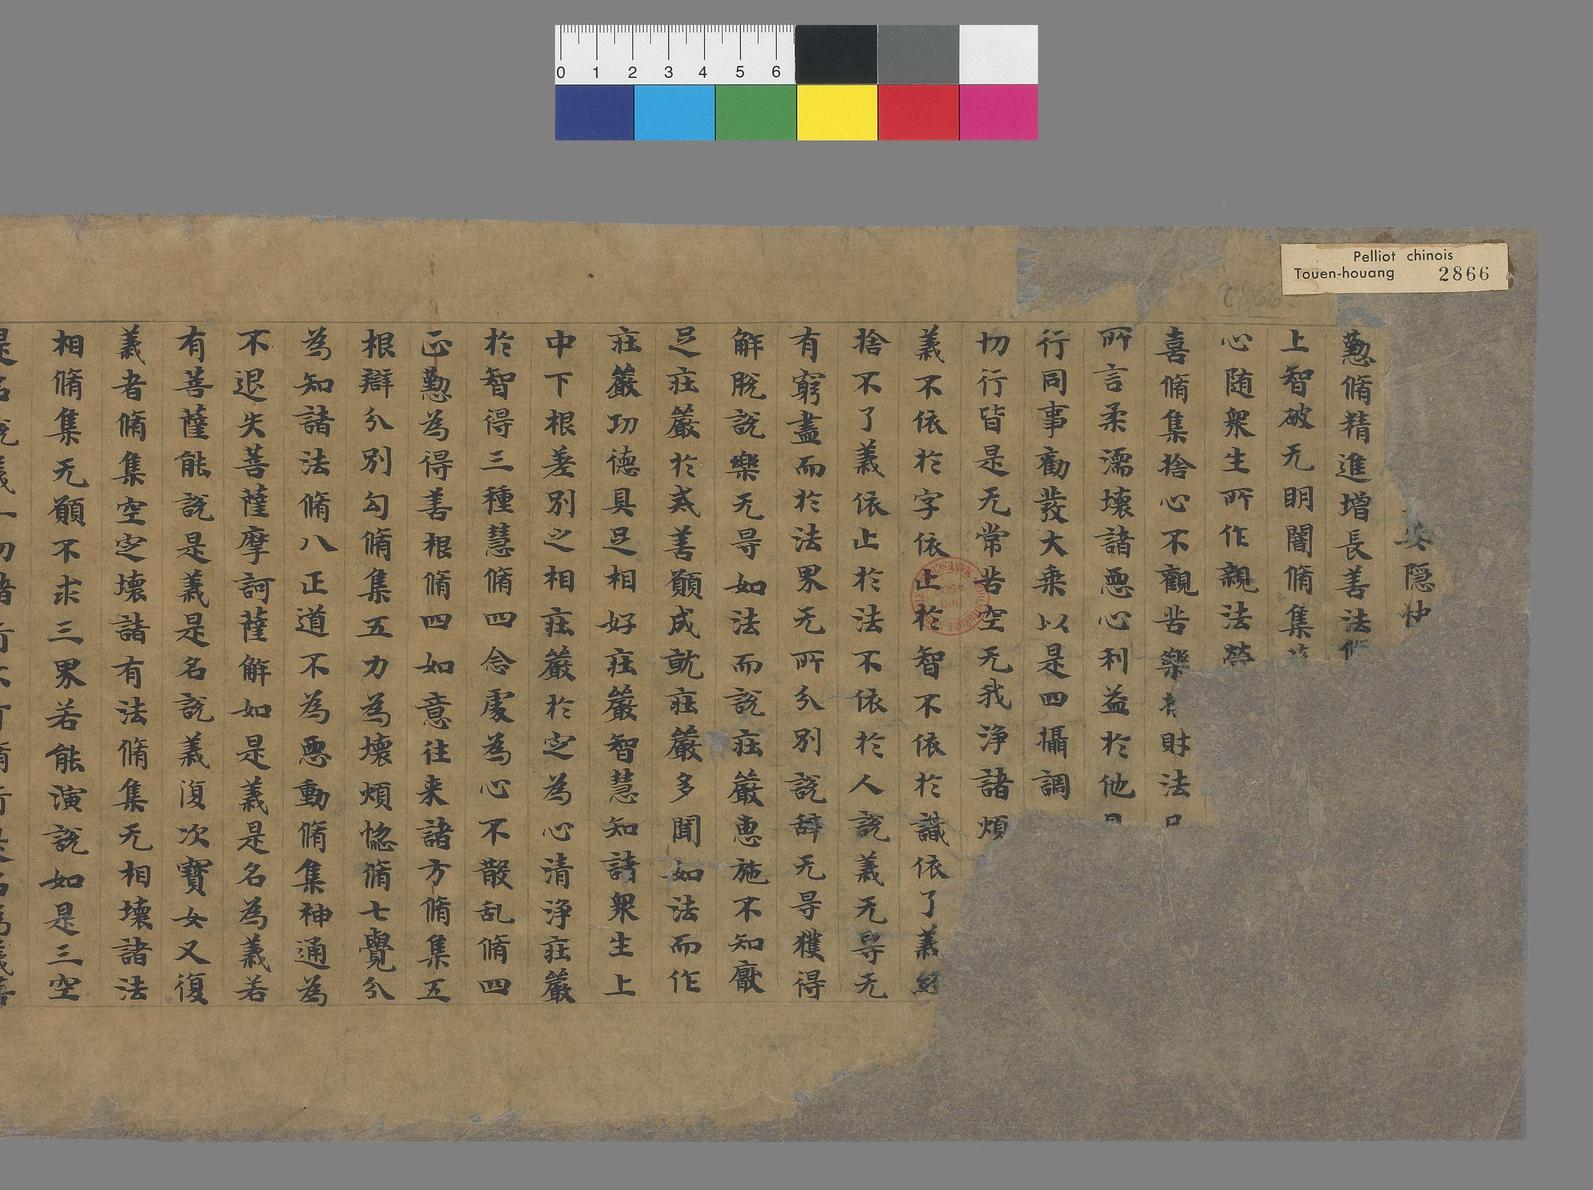 Pelliot chinois
Touen-houang 2866
0 1 2 3 4 5 6
安隱快
懃脩精進增長善法
上智破无明闇脩集
心随衆生所作親法
喜脩集捨心不觀苦樂 財法
所言柔濡壞諸惡心利益於他
行同事勸發大乘以是四攝調
切行皆是无常苦空无我淨諸煩
義不依於字依止於智不依於識依了義經
捨不了義依止於法不依於人說義无㝵无
有窮盡而於法界无所分別說辞无㝵獲得
解脫說樂无㝵如法而說莊嚴惠施不知厭
足莊嚴於戒善願成就莊嚴多聞如法而作
莊嚴功德具足相好莊嚴智慧知諸衆生上
中下根差別之相莊嚴於定為心清淨莊嚴
於智得三種慧脩四念處為心不散乱脩四
正懃為得善根脩四如意往来諸方脩集五
根辯分別勾脩集五力為壞煩惱脩七覺分
為知諸法脩八正道不為惡動脩集神通為
不退失菩薩摩訶薩解如是義是名為義若
有菩薩能說是義是名說義復次寶女又復
義者脩集空定壞諸有法脩集无相壞諸法
相脩集无願不求三界若能演說如是三空
是名說義一切諸行